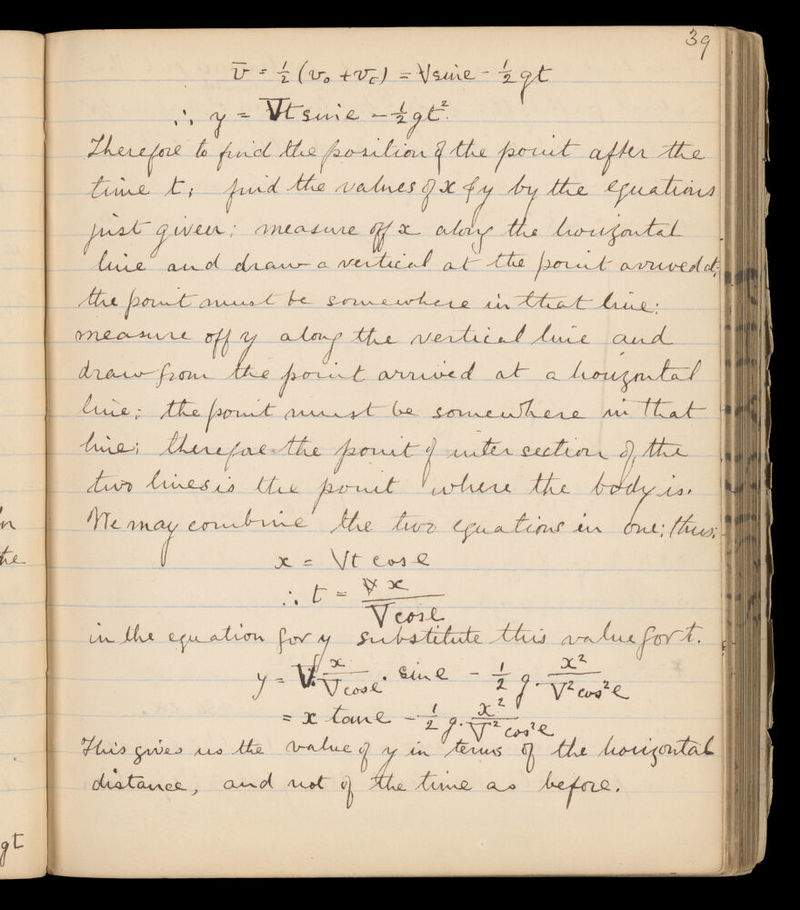 39
v̄ = ½ (v₀ + v_t) = V sin e - ½ gt
∴ y = Vt sin e - ½ gt².
Therefore to find the position of the point after the
time t; find the values of x & y by the equations
just given; measure off x along the horizontal
line and draw a vertical at the point arrived at;
the point must be somewhere in that line:
measure off y along the vertical line and
draw from the point arrived at a horizontal
line; the point must be somewhere in that
line; therefore the point of intersection of the
two lines is the point where the body is.
We may combine the two equations in one; thus:
x = Vt cos e
∴ t = x / V cos e
in the equation for y substitute this value for t.
y = V. x / V cos e . sin e - ½ g. x² / V² cos² e
= x tan e - ½ g. x² / V² cos² e
This gives us the value of y in terms of the horizontal
distance, and not of the time as before.
he
gt